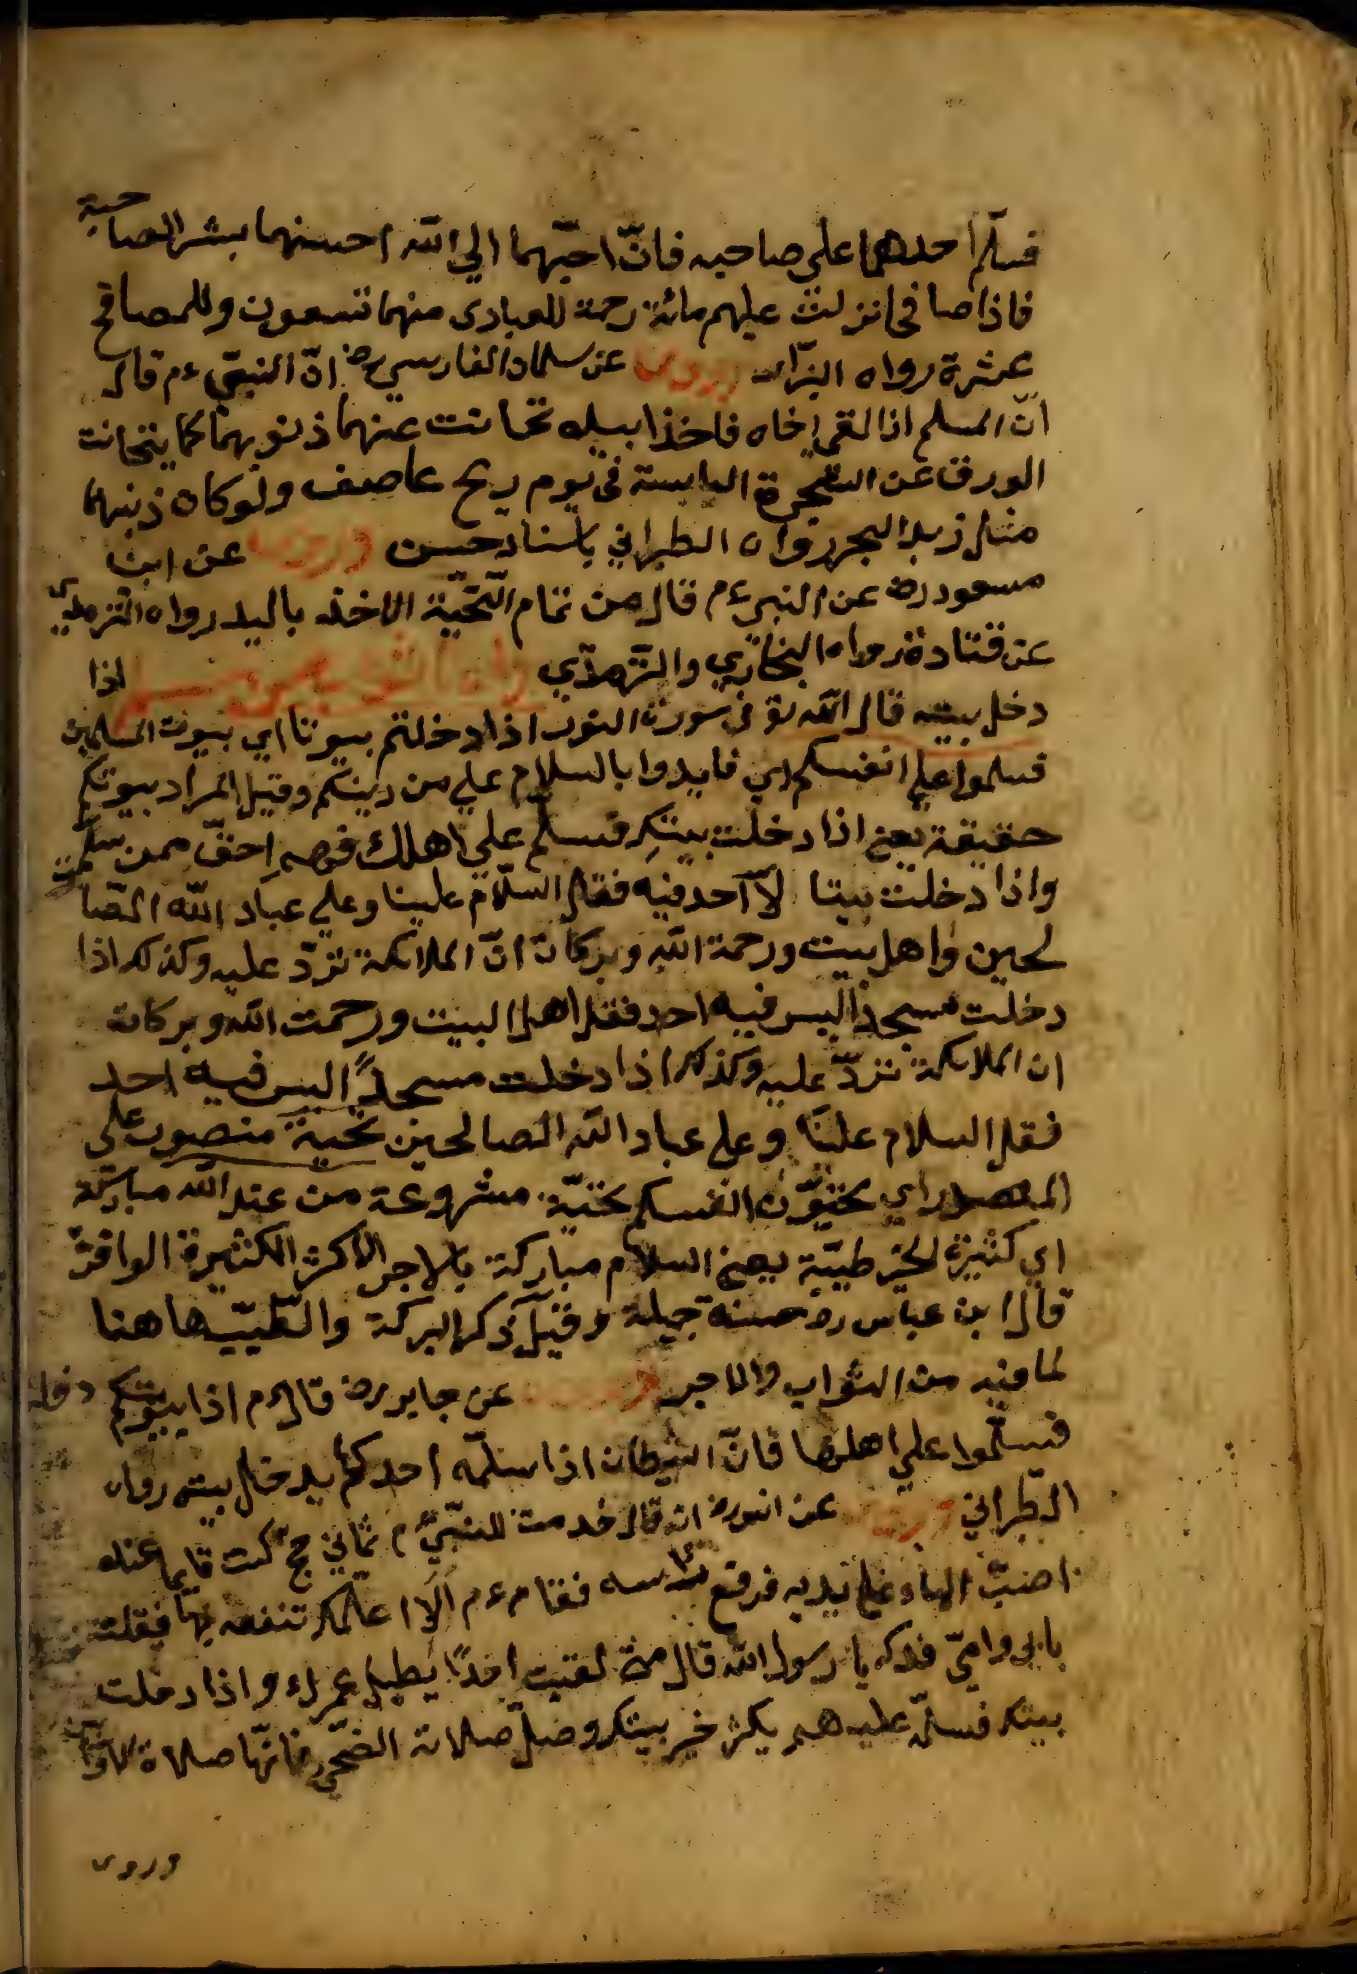 فسلّم احدهما على صاحبه فانّ احبّهما الي الله احسنهما بشرا لصاحبه
فاذا صافحا نزلت عليهم مائة رحمة للبادى منهما تسعون وللمصافح
عشرة رواه البزّار وروى عن سلمان الفارسي رض انّ النبيّ ءم قال
انّ المسلم اذا لقى اخاه فاخذ بيده تحاتت عنهما ذنوبهما كما يتحاتت
الورق عن الشجرة اليابسة فى يوم ريح عاصف ولو كان ذنبهما
مثل زبد البحر رواه الطبراني باسناد حسن وروى عن ابن
مسعود رض عن النبي ءم قال من تمام التّحيّة الاخذ باليد رواه الترمذي
عن قتادة رواه البخاري والترمذي اذا
دخل بيته قال الله تع فى سورة النور اذا دخلتم بيوتا اي بيوت المسلمين
فسلموا علي انفسكم اي فابدوا بالسلام علي من دينكم وقيل المراد بيوتكم
حقيقة يعني اذا دخلت بيتك فسلم علي اهلك فهم احقّ ممن سلّمت
واذا دخلت بيتا لا احد فيه فقل السلام علينا وعلي عباد الله الصا
لحين واهل بيت ورحمة الله وبركاته انّ الملائكة تردّ عليه وكذلك اذا
دخلت مسجدا ليس فيه احد فقل اهل البيت ورحمت الله وبركاته
ان الملائكة تردّ عليه وكذلك اذا دخلت مسجدًا ليس فيه احد
فقل السلام علينا وعلى عباد الله الصالحين تحية منصوب على
المصدر اي تحيّون انفسكم تحيّة مشروعة من عند الله مباركة
اي كثيرة الخير طيّبة يعني السلام مباركة بالاجر الاكثر الكثيرة الوافرة
قال ابن عباس رض حسنة جميلة وقيل ذكر البركة والطّيب هاهنا
لما فيه من الثواب والاجر وروى عن جابر رض قال ءم اذا دخلتم بيوتكم
فسلّموا علي اهلها فانّ الشيطان اذا سلّم احدكم لم يدخل بيته رواه
الطّبراني وروى عن انس رض انه قال خدمت للنبيّ ءم ثماني حجج كنت قايما عنده
اصبّ الماء على يديه فرفع راسه فقام ءم الا اعلمك تنفعه بها فقلت
بابى وامّي فداك يا رسول الله قال من لقيت احدًا يطيل عمرك واذا دخلت
بيتك فسلّم عليهم يكثر خير بيتك وصلّ صلاة الضّحى فانّها صلاة الاوّابين
وروى